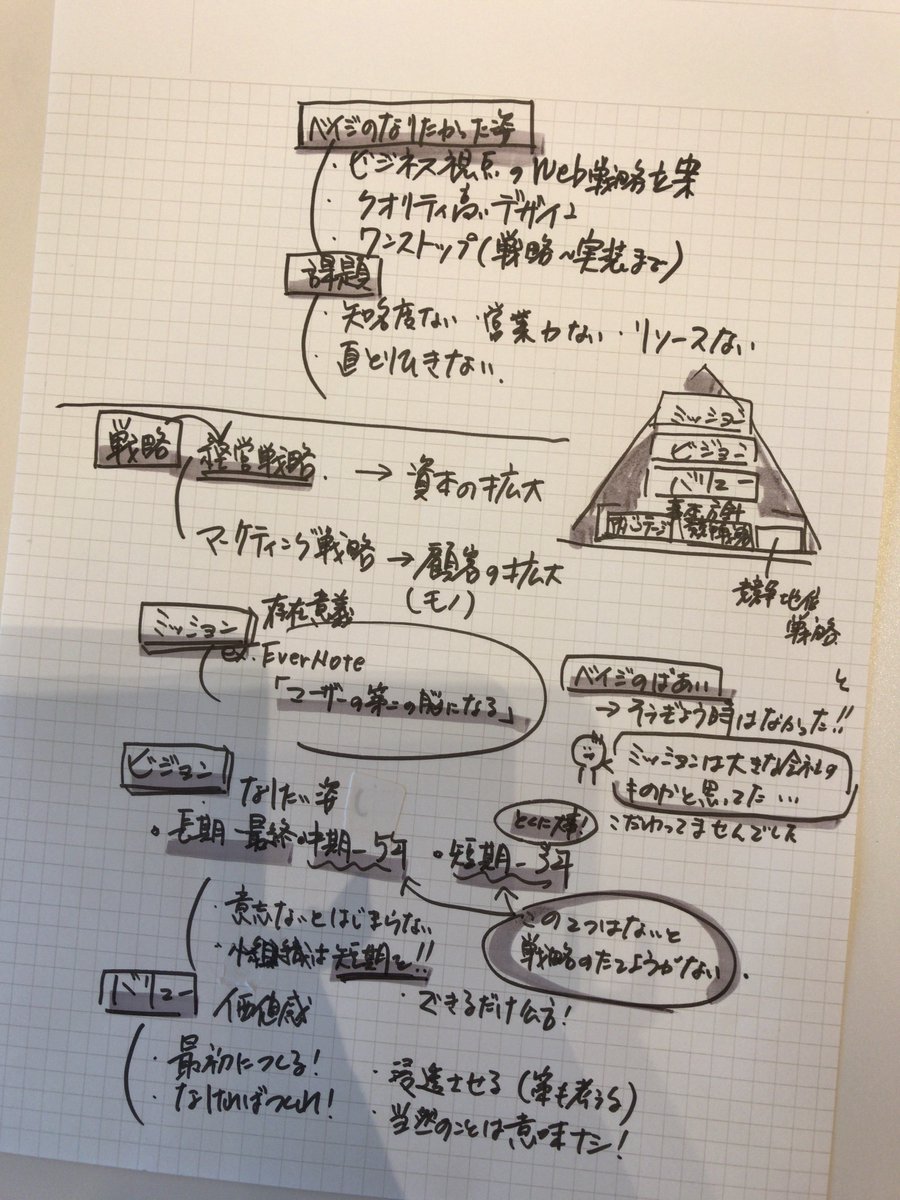 ベイジのなりたかった姿
・ビジネス視点のWeb戦略立案
・クオリティ高いデザイン
・ワンストップ(戦略〜実装まで)
課題
・知名度ない・営業力ない・リソースない
・直とりひきない.
戦略 経営戦略. → 資本の拡大
マーケティング戦略 → 顧客の拡大
(モノ)
ミッション
ビジョン
バリュー
競争地位
戦略
ミッション 存在意義
ex. EverNote
「ユーザーの第二の脳になる」
ベイジのばあい
→ そうぎょう時はなかった!!
ミッションは大きな会社の
ものかと思ってた…
こだわってませんでした
ビジョン なりたい姿
・長期―最終・中期―5年 ・短期―3年
とくに大事!
・意志ないとはじまらない
・小組織は短期で!!
この2つはないと
戦略のたてようがない.
バリュー 価値感
・できるだけ公言!
・最初につくる!
・なければつくれ!
・浸透させる(策も考える)
・当然のことは意味ナシ!